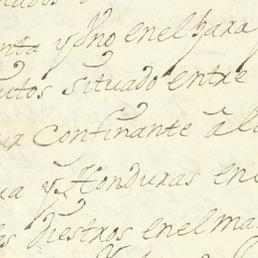 nta y Uno en el para
utos situado entre
ur confinante â lo
ua y Honduras en e
as diestros en el ma